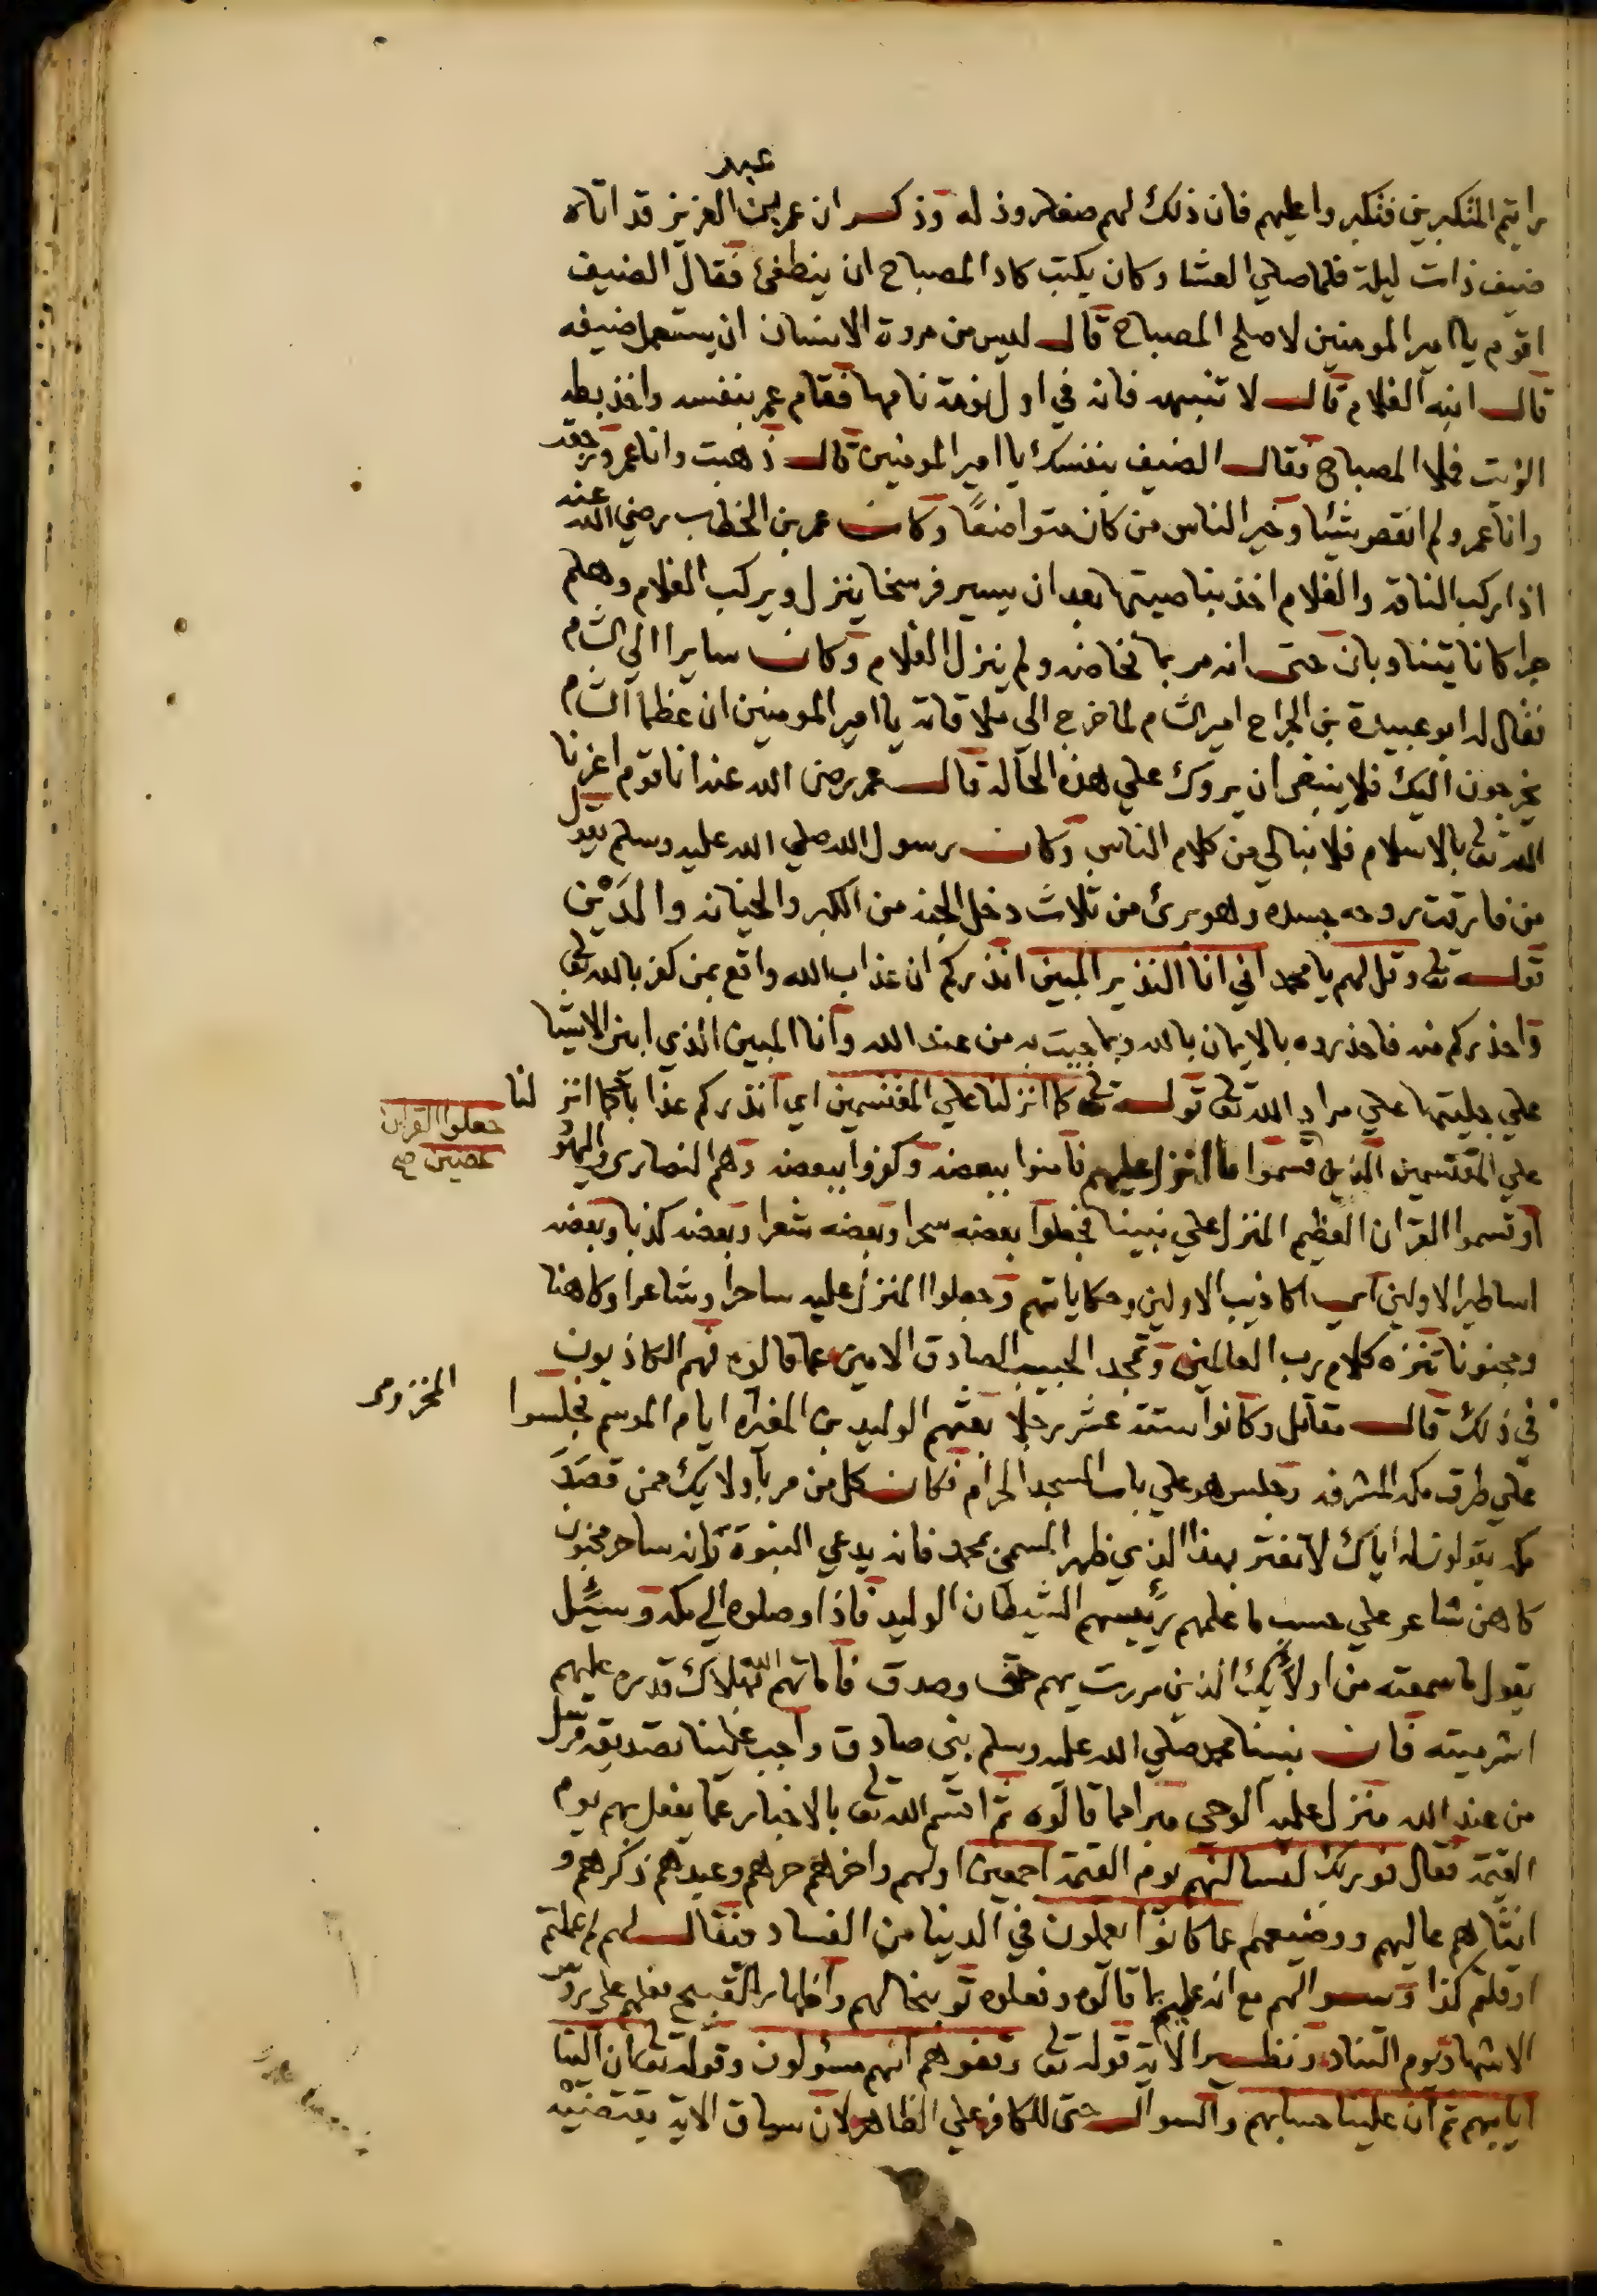 عبد
رايتم المتكبرين فتكبروا عليهم فان ذلك لهم صغار وذله وذكر ان عمر بن العزيز قد اتاه
ضيف ذات ليلة فلما صلي العشا وكان يكتب كاد المصباح ان ينطفئ فقال الضيف
اقوم يا امير المومنين لاصلح المصباح قال ليس من مروة الانسان ان يستعمل ضيفه
قال انبه الغلام قال لا تنبهه فانه في اول نومة نامها فقام عمر بنفسه واخذ بطه
الزيت فملا المصباح فقال الضيف بنفسك يا امير المومنين قال ذهبت وانا عمر ورجعت
وانا عمر ولم انقص شيئا وخير الناس من كان متواضعًا وكان عمر بن الخطاب رضي الله عنه
اذا ركب الناقة والغلام اخذ بناصيتها بعد ان يسير فرسخا ينزل ويركب الغلام وهلم
جرا كانا يتناوبان حتى انه مر بما نخاضه ولم ينزل الغلام وكان سايرا الي الشام
فقال له ابو عبيدة بن الجراح امير الشام لما خرج الي ملاقاته يا امير المومنين ان عظما الشام
يخرجون اليك فلا ينبغي ان يروك علي هذه الحالة قال عمر رضى الله عنه انا قوم اعزنا
الله تعالى بالاسلام فلا نبالي من كلام الناس وكان رسول الله صلي الله عليه وسلم يقول
من فارقت روحه جسده وهو برئ من ثلاث دخل الجنه من الكبر والخيانه والدَيْن
قوله تعالى وقل لهم يا محمد اني انا النذير المبين انذركم ان عذاب الله واقع بمن كفر بالله تعالى
واحذركم منه فاحذروه بالايمان بالله وبما جيت به من عند الله وانا المبين الذي ابين الاشيا
علي جليتها علي مراد الله تعالى قوله تعالى كما انزلنا علي المقتسمين اي انذركم عذابا كما انزلنا
علي المقتسمين الذين قسموا ما انزل عليهم فآمنوا ببعضه وكفروا ببعضه وهم النصارى واليهود
جعلوا القران
عضين صح
او قسموا القران العظيم المنزل علي نبينا فجعلوا بعضه سحرا وبعضه شعرا وبعضه كذبا وبعضه
اساطير الاولين اي اكاذيب الاولين وحكاياتهم وجعلوا المنزل عليه ساحرا وشاعرا وكاهنا
ومجنونا تنزه كلام رب العالمين وتمجد الحبيب الصادق الامين عما قالوه فهم الكاذبون
في ذلك قال مقاتل وكانوا ستة عشر رجلا بعثهم الوليد بن المغيره ايام الموسم فجلسوا
المخزومى
علي طرق مكه المشرفه وجلس هو علي باب المسجد الحرام فكان كل من مر باولايك ممن قصد
مكه يقولون له اياك لا تغتر بهذا الذي ظهر المسمى بمحمد فانه يدعي النبوة وانه ساحر مجنون
كاهن شاعر علي حسب ما علمهم رئيسهم الشيطان الوليد فاذا وصلوه الي مكه وسيئل
يقول ما سمعته من اولائيك الذين مررت بهم حق وصدق فاماتهم الله تعالى
اشر ميته فان نبينا محمد صلي الله عليه وسلم نبى صادق واجب علينا تصديقه مرسل
من عند الله منزل عليه الوحى مبرا مما قالوه ثم اقسم الله تعالى بالاخبار عما يفعل بهم يوم
القيمة فقال فوربك لنسالنهم يوم القيمة اجمعين اولهم واخرهم حرهم وعبدهم ذكرهم و
انثاهم عاليهم ووضيعهم عما كانوا يعملون في الدنيا من الفساد فيقال لهم لم عملتم
او قلتم كذا وسوالهم مع انه عليم بما قالوه وفعلوه توبيخا لهم واظهار القبيح فعلهم علي رؤس
الاشهاد يوم التناد ونظير الاية قوله تعالى وقفوهم انهم مسئولون وقوله تعالى ان الينا
ايابهم ثم ان علينا حسابهم والسوال حتى للكافر علي الظاهر لان سياق الاية يقتضيه